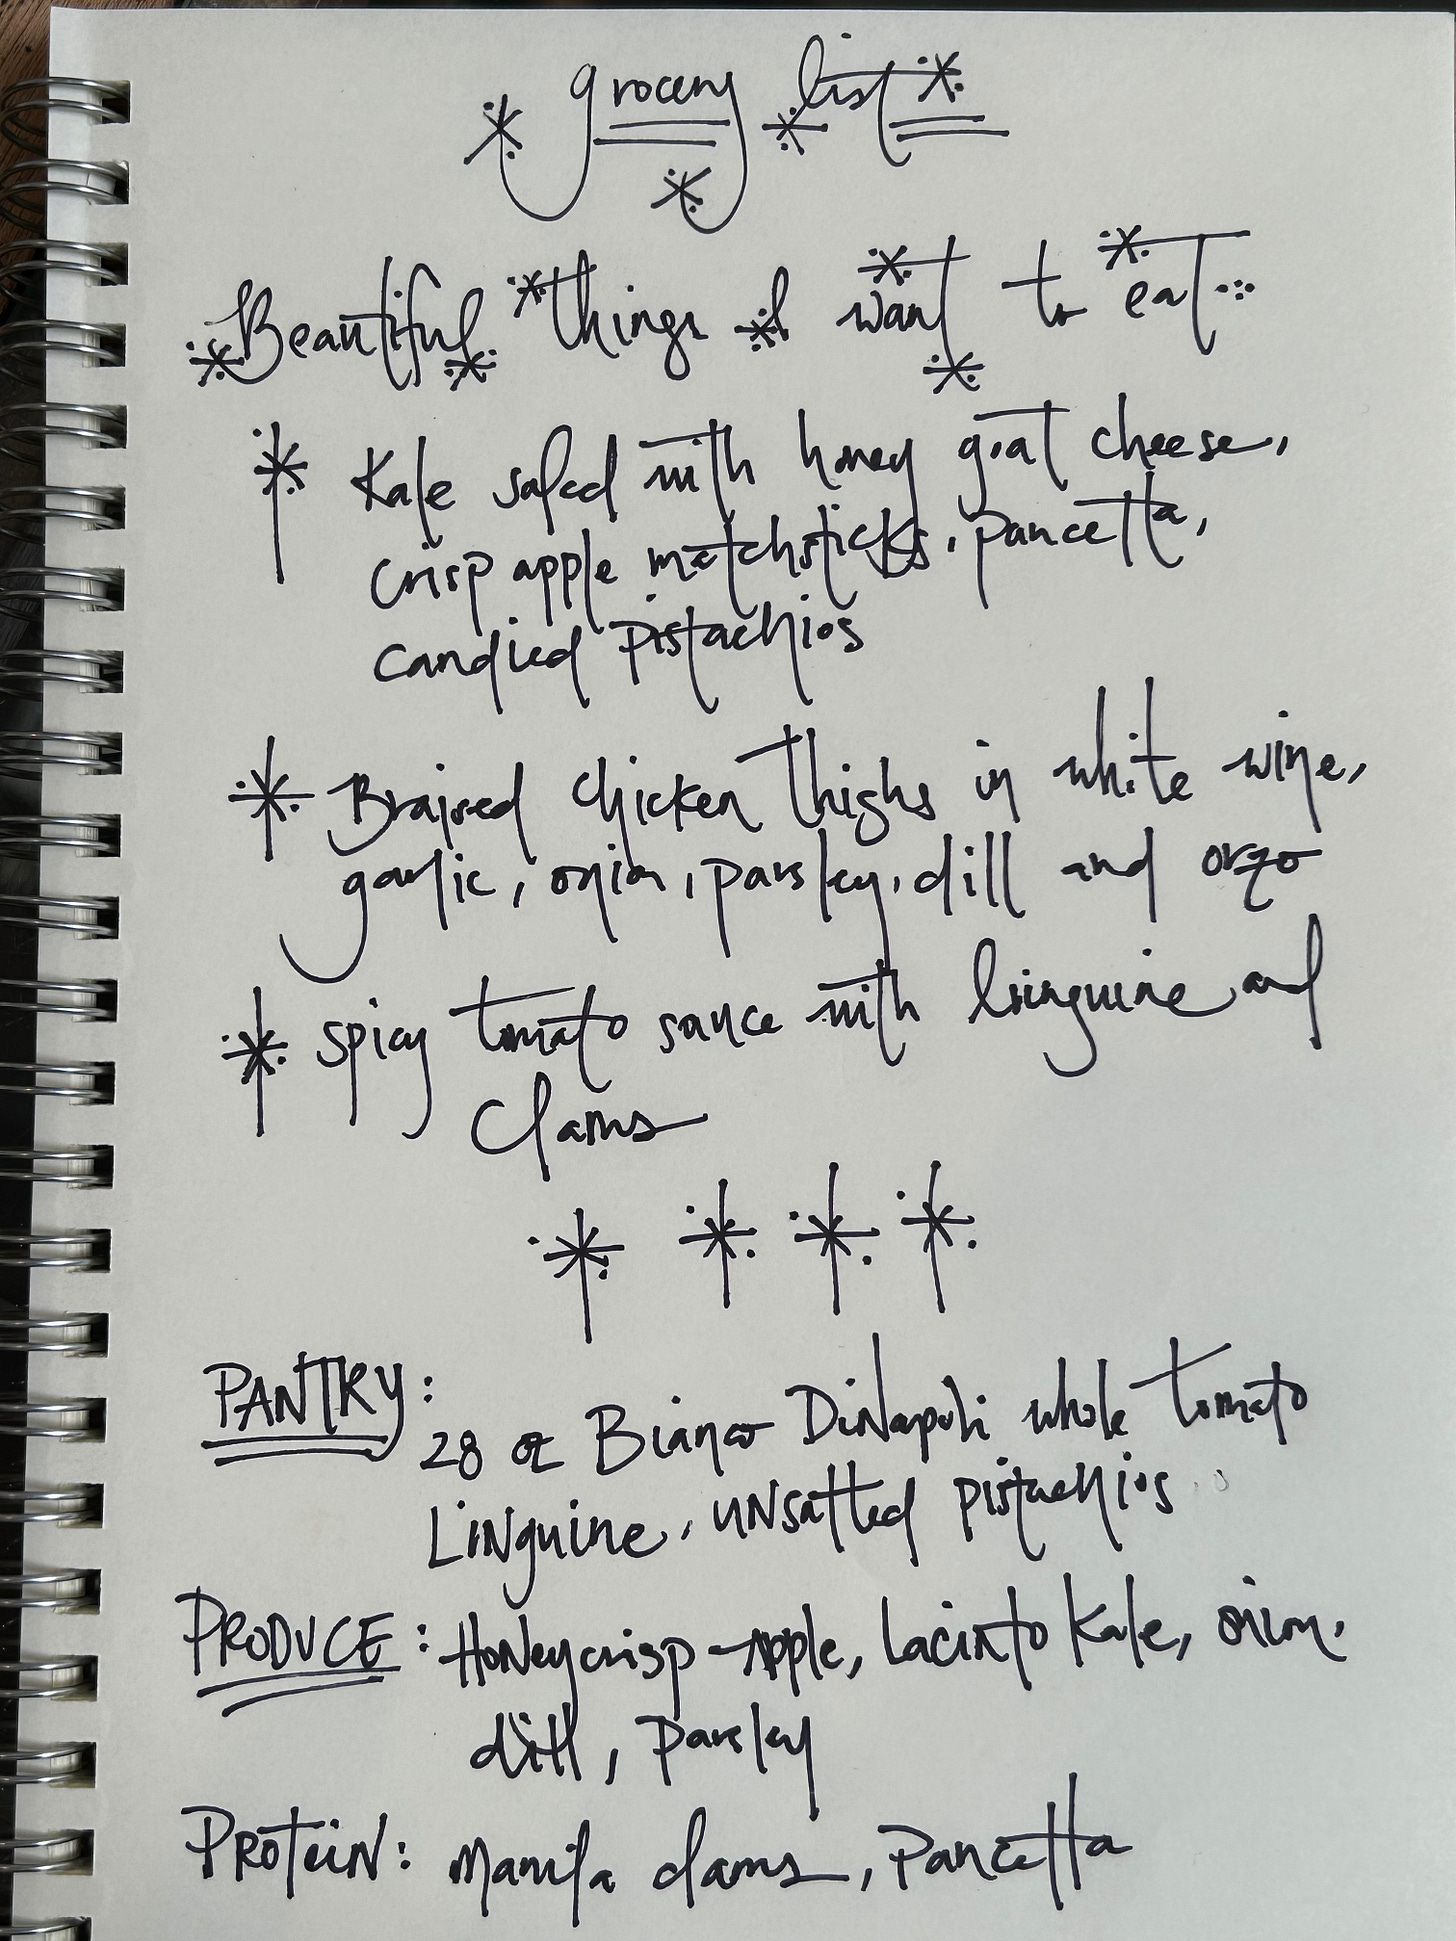 grocery list
Beautiful things I want to eat...
Kale salad with honey goat cheese,
crisp apple matchsticks, pancetta,
candied pistachios
Braised chicken thighs in white wine,
garlic, onion, parsley, dill and orzo
spicy tomato sauce with linguine and
clams
PANTRY:
28 oz Bianco DiNapoli whole tomato
Linguine, unsalted pistachios
PRODUCE: Honeycrisp Apple, Lacinto Kale, onion,
dill, parsley
PROTEIN: Manila clams, Pancetta